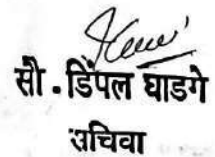 सौ. डिंपल घाडगे
सचिवा